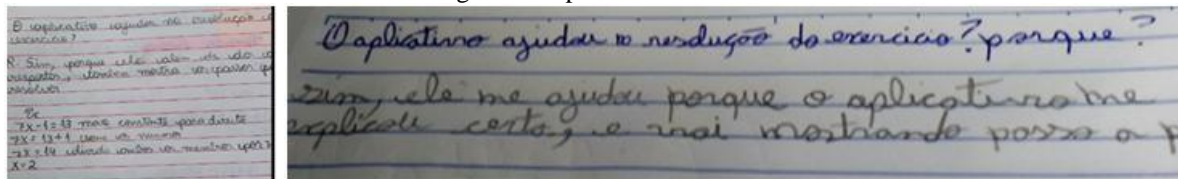 O aplicativo ajudou na resolução
exercício?
R: Sim, porque ele além de
resposta, também mostra os passos
resolver
Ex
7x-1=13 move constante para direita
7x=13+1 some os
7x=14 divida ambos os membros por
x=2
O aplicativo ajudou na resolução do exercício? porque?
sim, ele me ajudou porque o aplicativo me
explicou certo, e vai mostrando passo a p